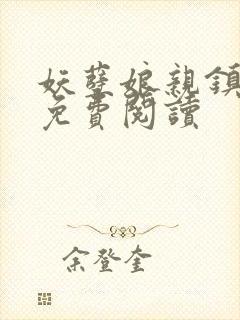 妖孽娘親鎮
免費閱讀
余登奎